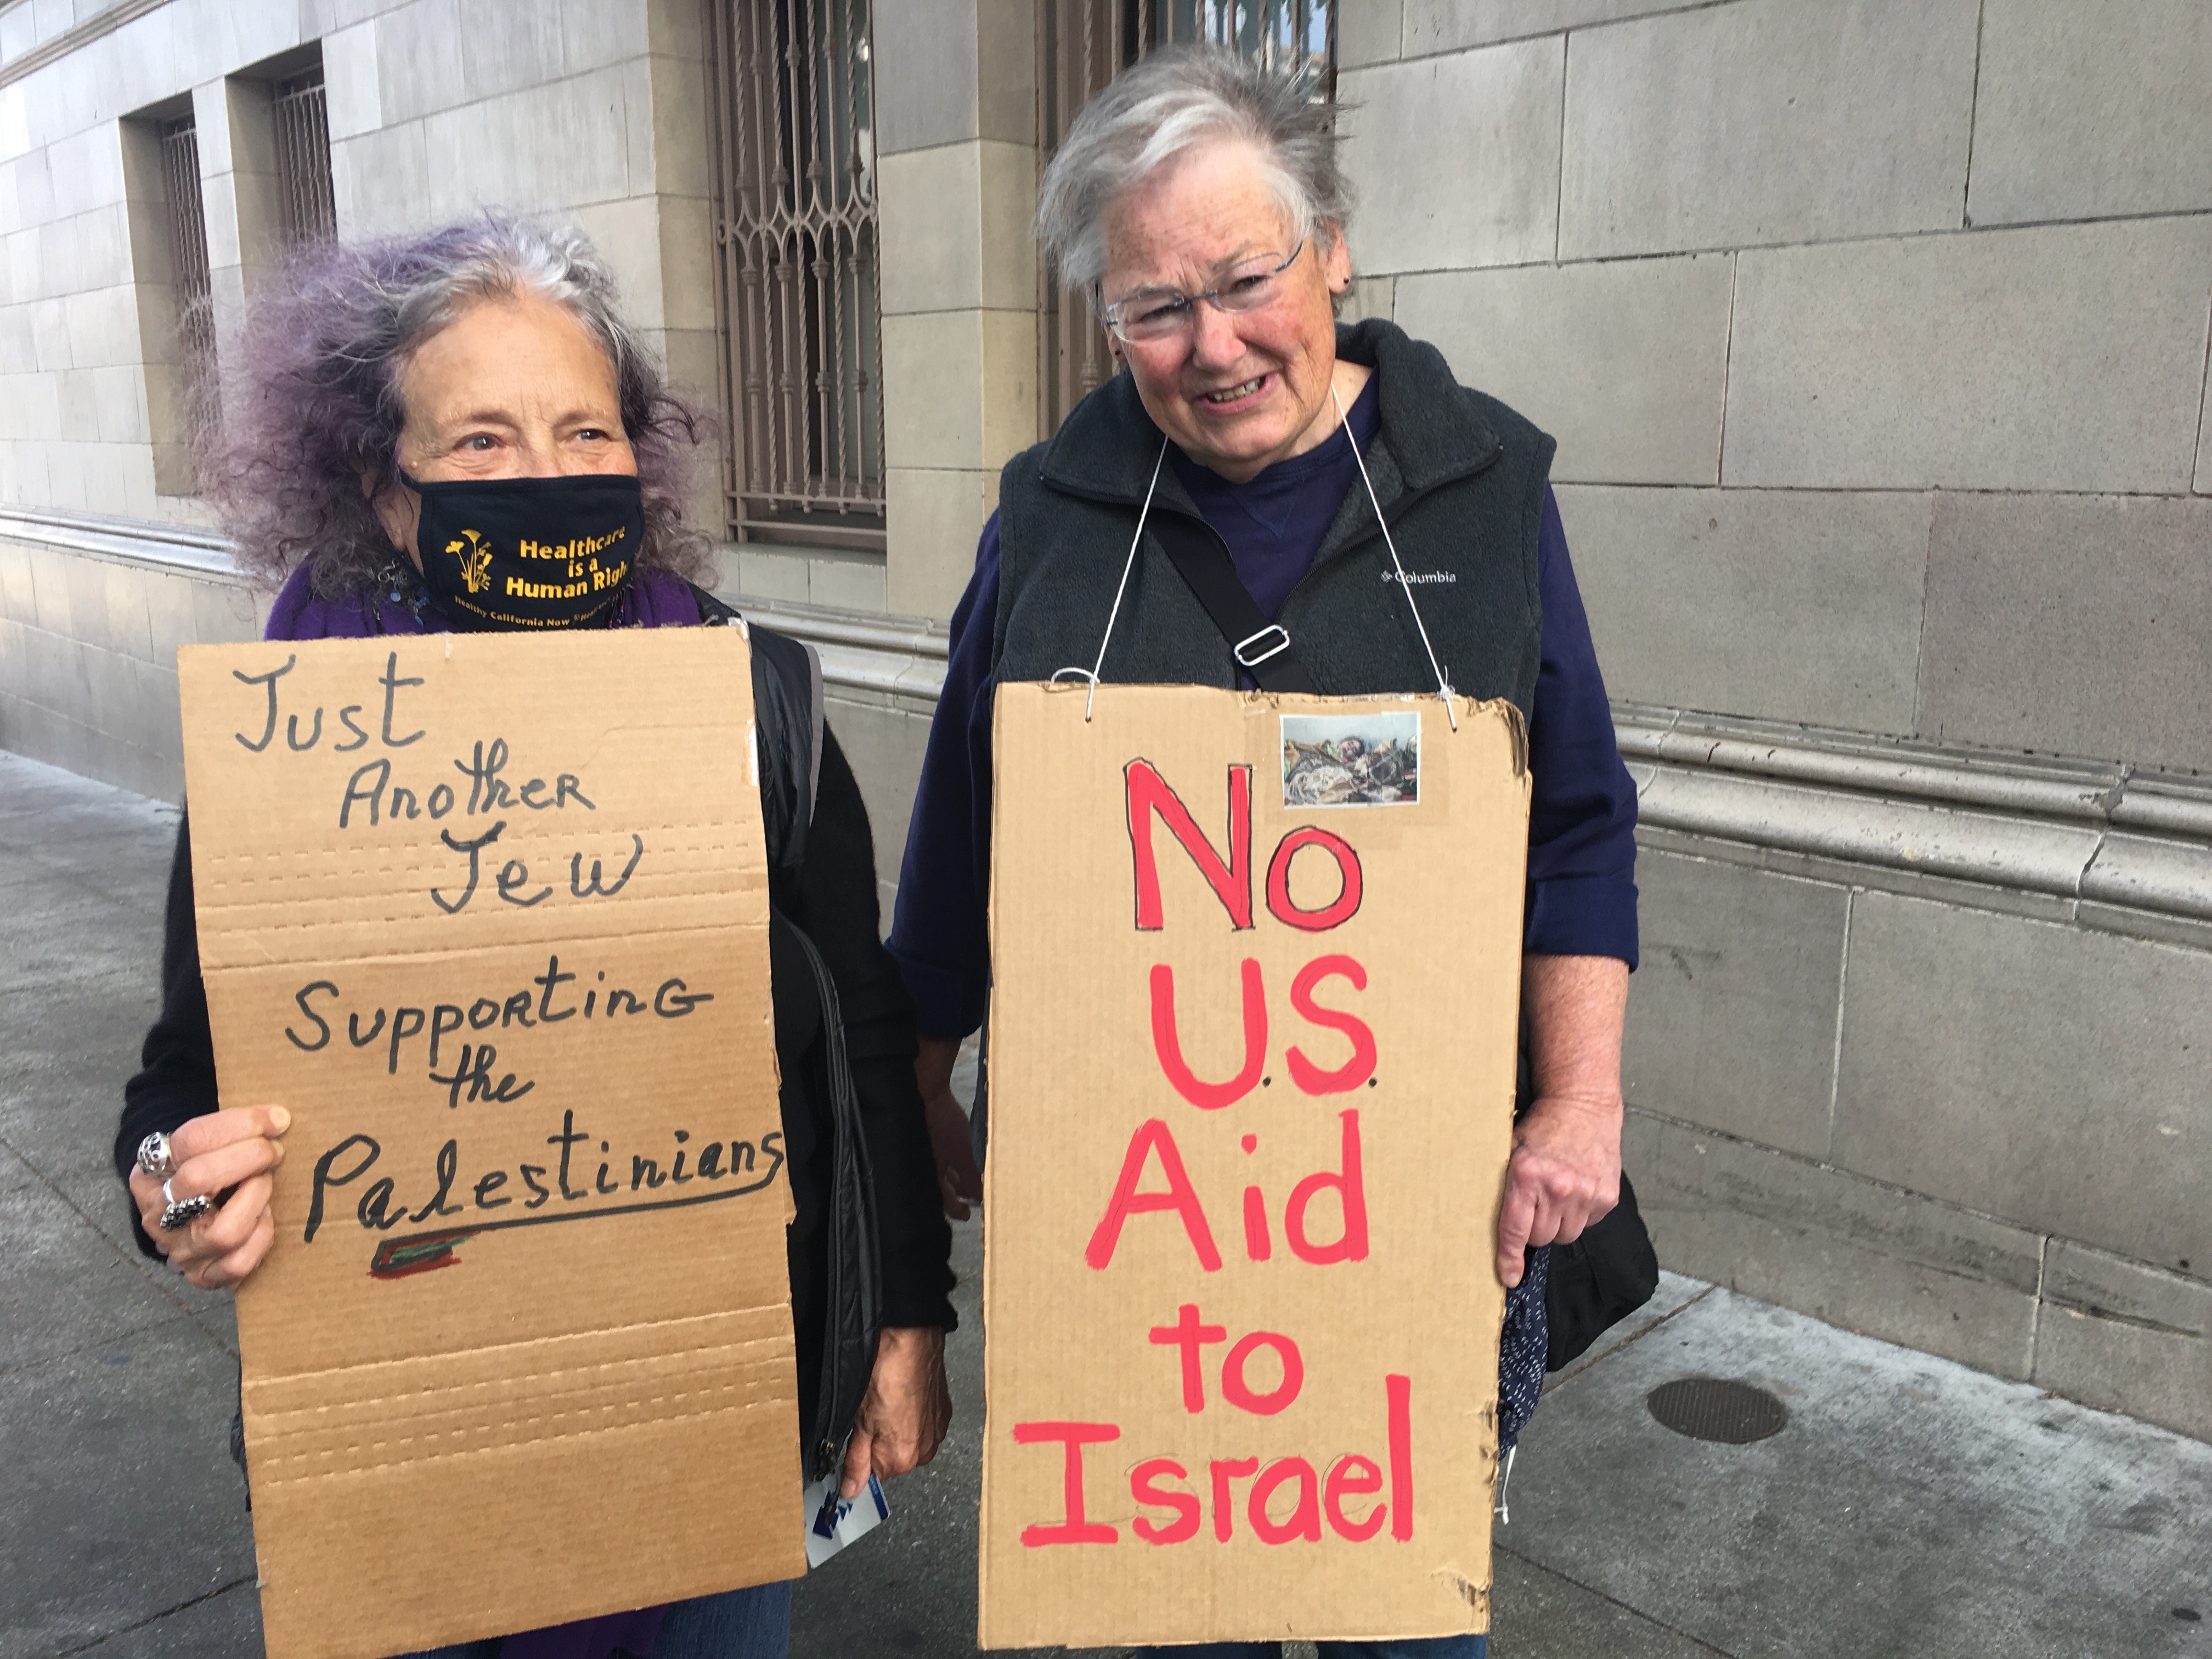 Healthcare
is a
Human Righ
Healthy California Now
Just
Another
Jew
Supporting
the
Palestinians
Columbia
No
U.S.
Aid
to
Israel